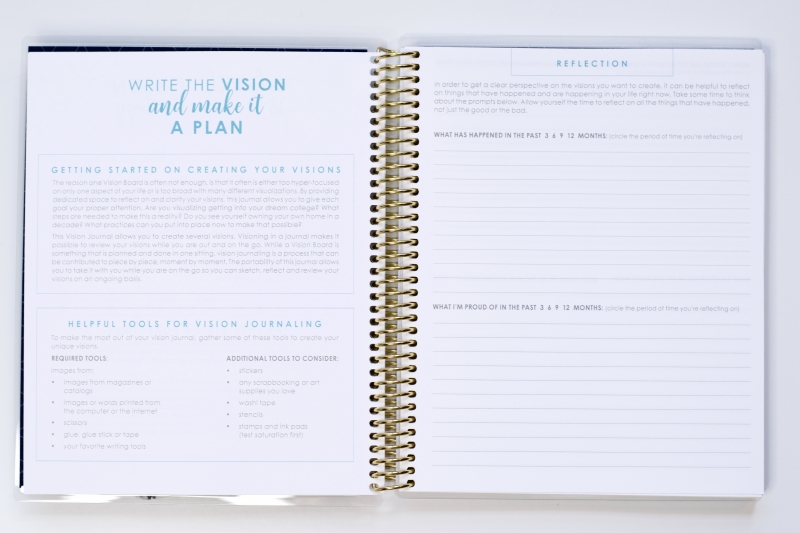 WRITE THE VISION
and make it
A PLAN
GETTING STARTED ON CREATING YOUR VISIONS
The reason one Vision Board is often not enough, is that it often is either too hyper-focused
on only one aspect of your life or is too broad with many different visualizations. By providing
dedicated space to reflect on and clarify your visions, this journal allows you to give each
goal your proper attention. Are you visualizing getting into your dream college? What
steps are needed to make this a reality? Do you see yourself owning your own home in a
decade? What practices can you put into place now to make that possible?
This Vision Journal allows you to create several visions. Visioning in a journal makes it
possible to review your visions while you are out and on the go. While a Vision Board is
something that is planned and done in one sitting, vision journaling is a process that can
be contributed to piece by piece, moment by moment. The portability of this journal allows
you to take it with you while you are on the go so you can sketch, reflect and review your
visions on an ongoing basis.
HELPFUL TOOLS FOR VISION JOURNALING
To make the most out of your vision journal, gather some of these tools to create your
unique visions.
REQUIRED TOOLS:
Images from:
• images from magazines or
catalogs
• images or words printed from
the computer or the internet
• scissors
• glue, glue stick or tape
• your favorite writing tools
ADDITIONAL TOOLS TO CONSIDER:
• stickers
• any scrapbooking or art
supplies you love
• washi tape
• stencils
• stamps and ink pads
(test saturation first)
REFLECTION
In order to get a clear perspective on the visions you want to create, it can be helpful to reflect
on things that have happened and are happening in your life right now. Take some time to think
about the prompts below. Allow yourself the time to reflect on all the things that have happened,
not just the good or the bad.
WHAT HAS HAPPENED IN THE PAST 3 6 9 12 MONTHS: (circle the period of time you're reflecting on)
WHAT I'M PROUD OF IN THE PAST 3 6 9 12 MONTHS: (circle the period of time you're reflecting on)